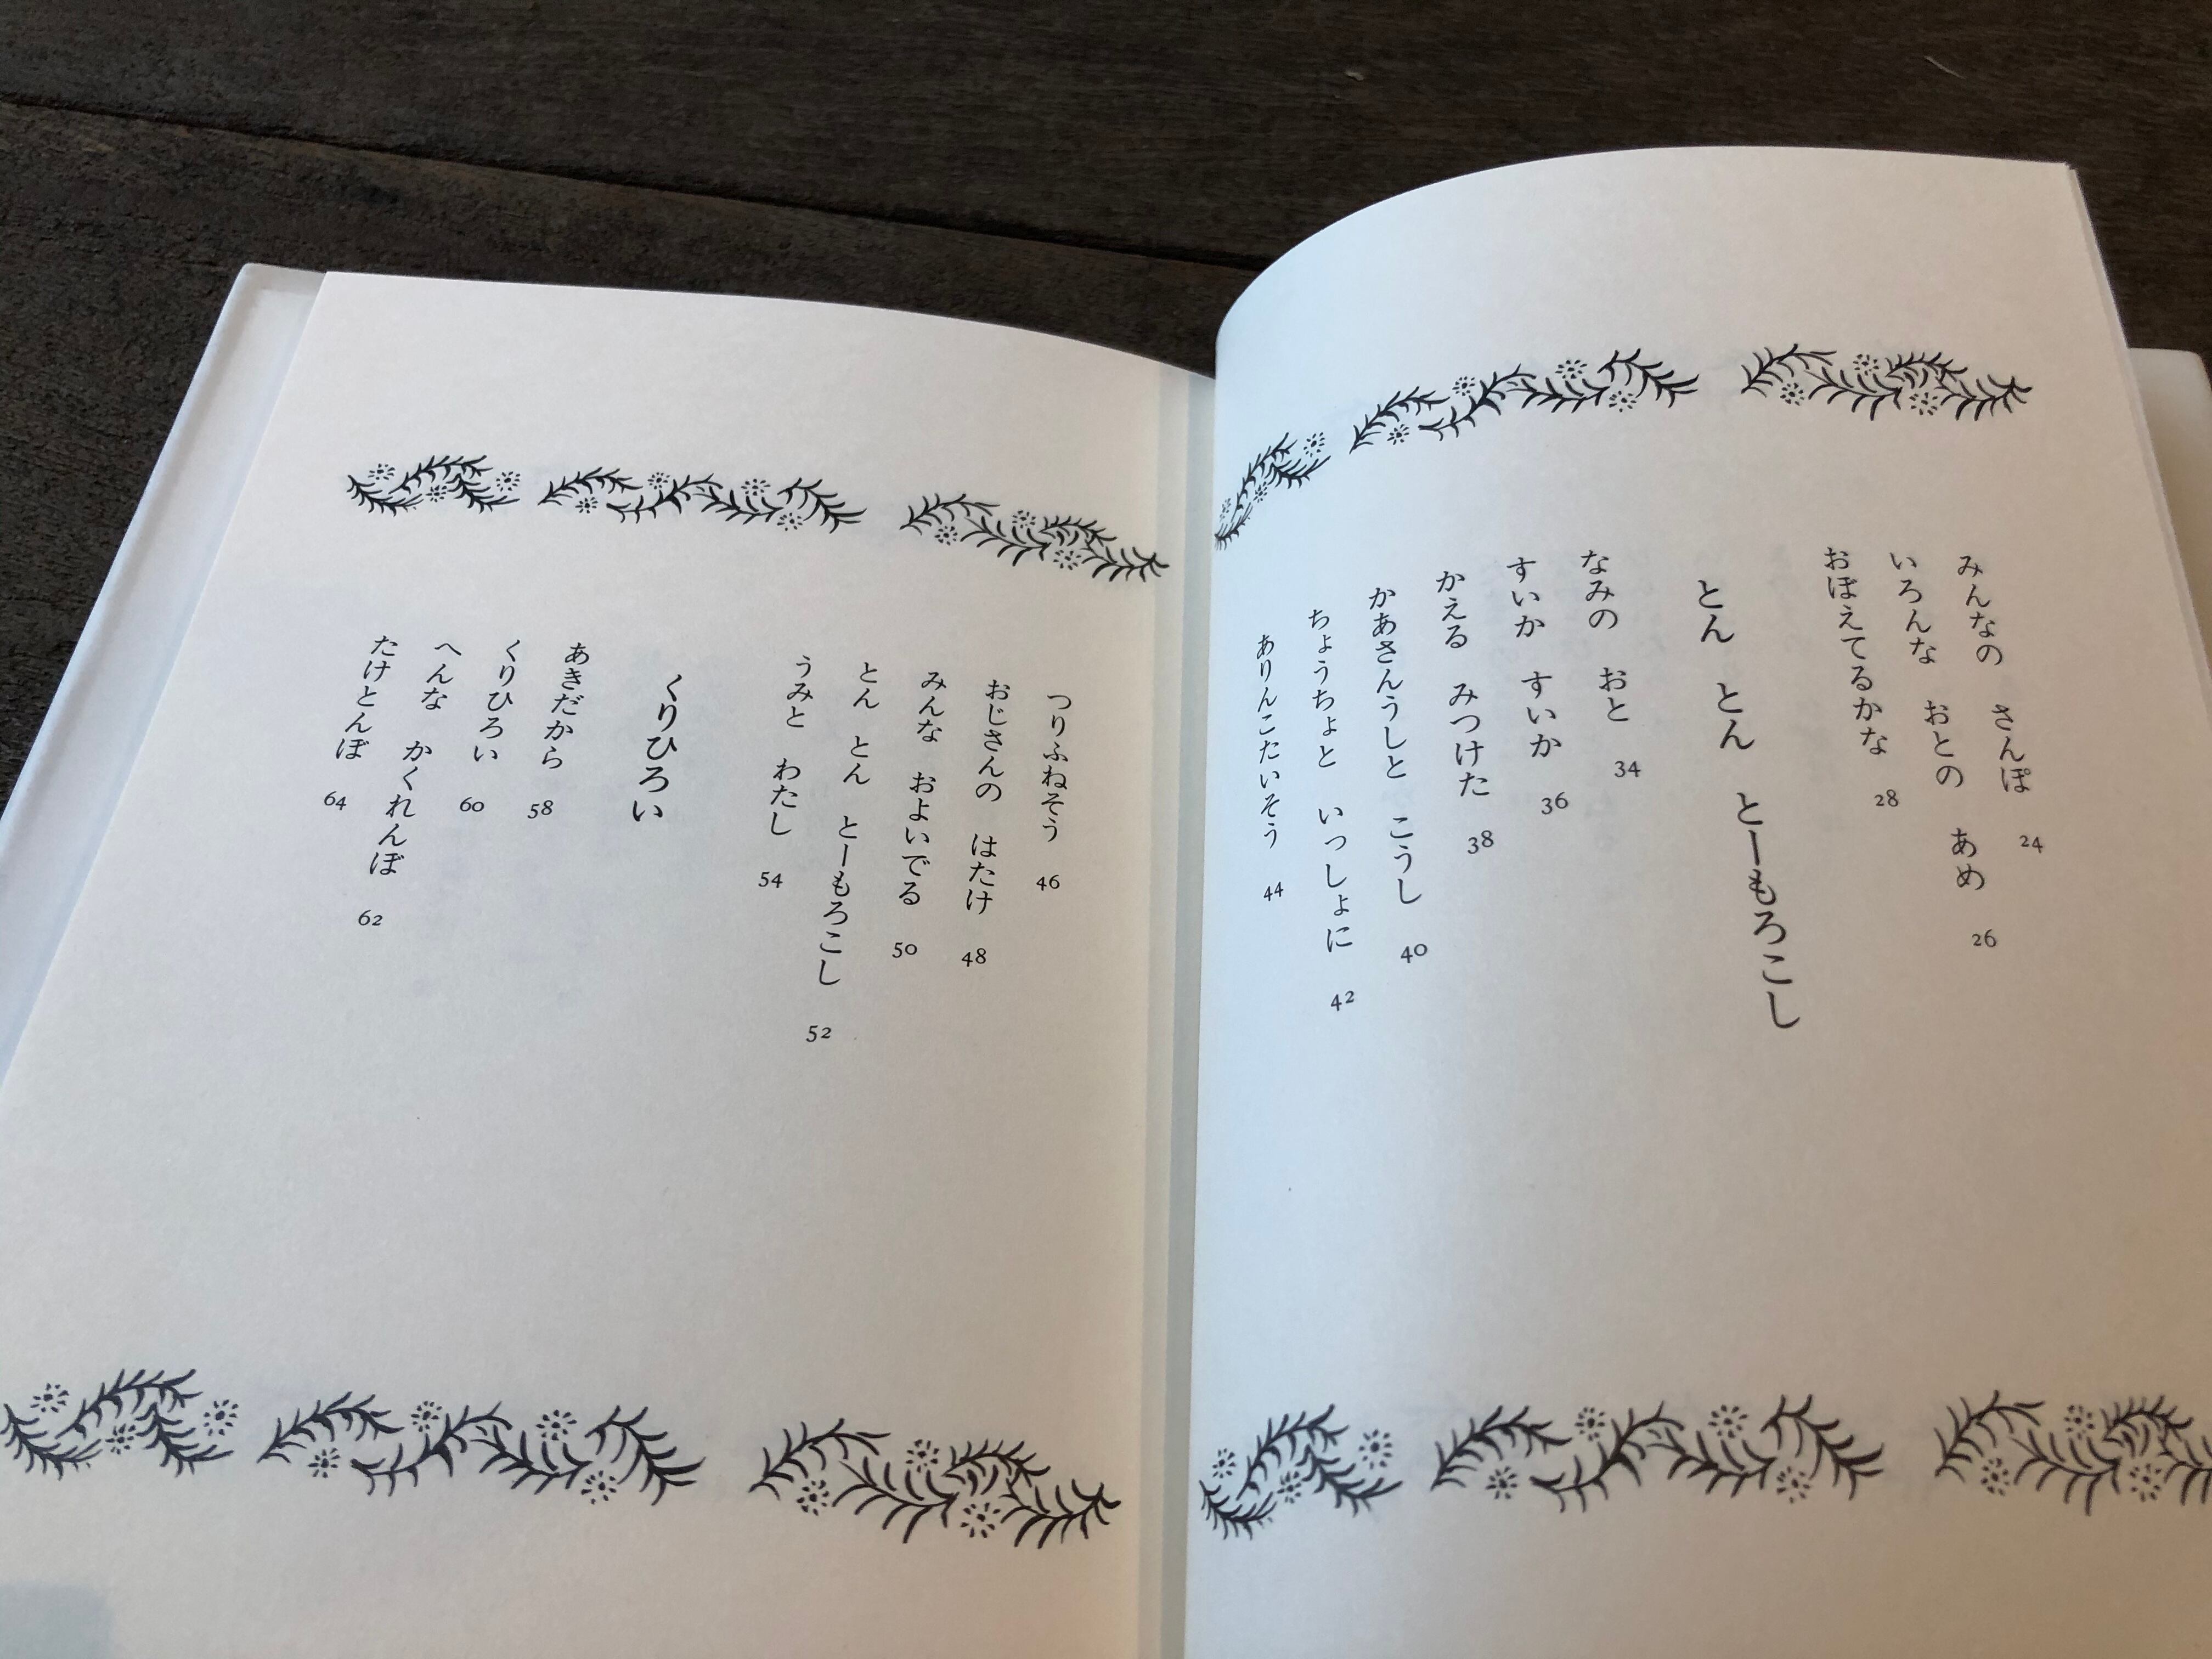 みんなの　さんぽ　24
いろんな　おとの　あめ　26
おぼえてるかな　28
とん　とん　とーもろこし
なみの　おと　34
すいか　すいか　36
かえる　みつけた　38
かあさんうしと　こうし　40
ちょうちょと　いっしょに　42
ありんこたいそう　44
つりふねそう　46
おじさんの　はたけ　48
みんな　およいでる　50
とん　とん　とーもろこし　52
うみと　わたし　54
くりひろい
あきだから　58
くりひろい　60
へんな　かくれんぼ　62
たけとんぼ　64